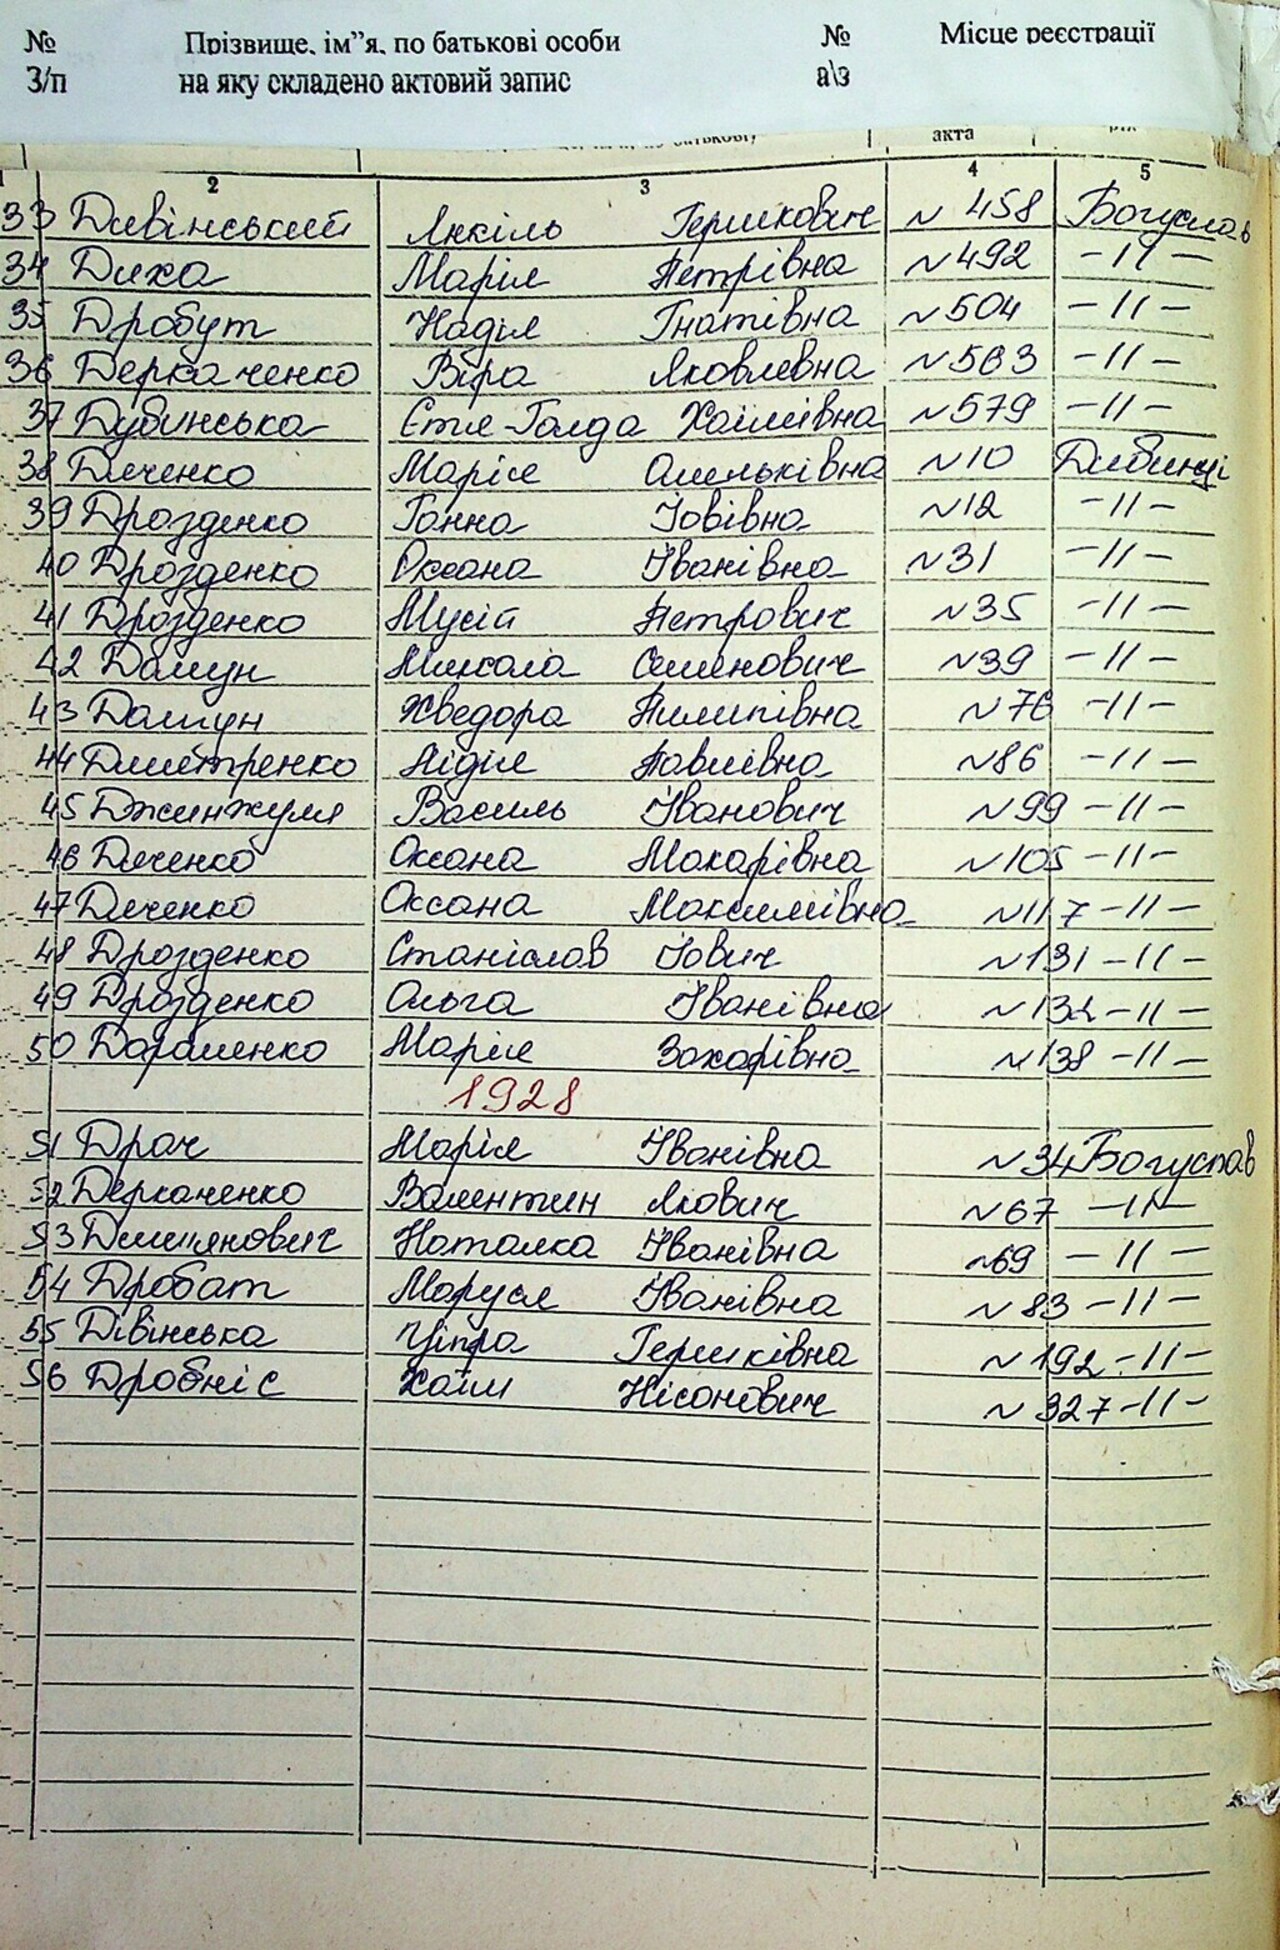 № Прізвище, ім”я, по батькові особи № Місце реєстрації
З/п на яку складено актовий запис а\з
акта
2 3 4 5
33 Дивінський Янкіль Гершкович №458 Богуслав
34 Диха Марія Петрівна №492 -11-
35 Дробут Надія Гнатівна №504 -11-
36 Деркаченко Віра Яковлевна №563 -11-
37 Дубинська Етля-Голда Хаімівна №579 -11-
38 Дяченко Марія Омельківна №10 Дибинці
39 Дрозденко Ганна Іовівна №12 -11-
40 Дрозденко Оксана Іванівна №31 -11-
41 Дрозденко Мусій Петрович №35 -11-
42 Дамун Микола Семенович №39 -11-
43 Дамун Хведора Пилипівна №76 -11-
44 Дмитренко Лідія Павлівна №86 -11-
45 Джинжуля Василь Іванович №99 -11-
46 Дяченко Оксана Макарівна №105 -11-
47 Дяченко Оксана Максимівна №117 -11-
48 Дрозденко Станіслав Іович №131 -11-
49 Дрозденко Ольга Іванівна №132 -11-
50 Дараменко Марія Захарівна №138 -11-
1928
51 Драч Марія Іванівна №34 Богуслав
52 Деркаченко Валентин Якович №67 -11-
53 Демянович Наталка Іванівна №69 -11-
54 Дробат Маруся Іванівна №83 -11-
55 Дівінська Ціпра Гершківна №192 -11-
56 Дробніс Хаім Нісонович №327 -11-